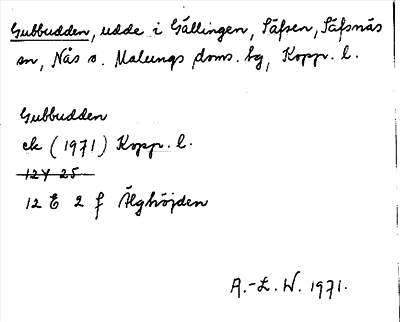 Gubbudden, udde i Gällingen, Säfsen, Säfsnäs
sn, Nås o. Malungs doms. hg, Kopp. l.
Gubbudden
ek (1971) Kopp. l.
12 Y 25
12 E 2 f Älghöjden
A.-L. W. 1971.